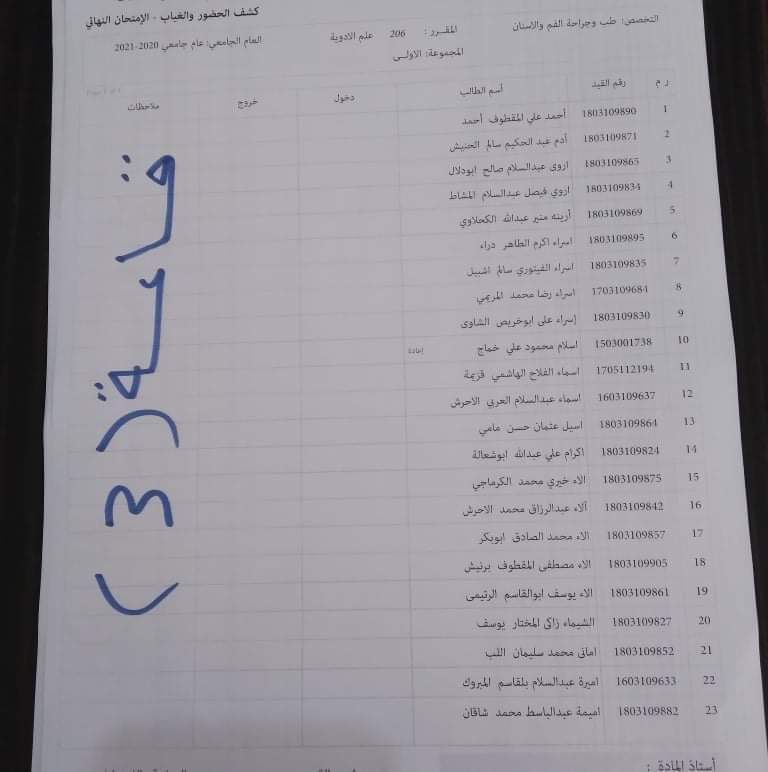 كشف الحضور والغياب - الإمتحان النهائي
التخصص: طب وجراحة الفم والاسنان
المقرر : 206 علم الادوية
العام الجامعي: عام جامعي 2020-2021
المجموعة: الاولى
Page 1 of 1
ر م رقم القيد أسم الطالب دخول خروج ملاحظات
1 1803109890 أحمد علي المقطوف أحمد
2 1803109871 أدم عبد الحكيم سالم الحنيش
3 1803109865 اروى عبدالسلام صالح ابودلال
4 1803109834 اروي فيصل عبدالسلام المشاط
5 1803109869 أرينه منير عبدالله الكحلاوي
6 1803109895 اسراء اكرم الطاهر دراء
7 1803109835 اسراء الفيتوري سالم اشبيل
8 1703109684 اسراء رضا محمد المريمي
9 1803109830 إسراء على ابوخريص الشاوى
10 1503001738 اسلام محمود علي خماج إعادة
11 1705112194 اسماء الفلاح الهاشمي قزيمة
12 1603109637 اسماء عبدالسلام العربي الاحرش
13 1803109864 اسيل عثمان حسن مامي
14 1803109824 اكرام علي عبدالله ابوشعالة
15 1803109875 الاء خيري محمد الكرماجي
16 1803109842 آلاء عبدالرزاق محمد الاحرش
17 1803109857 الاء محمد الصادق ابوبكر
18 1803109905 الاء مصطفى المقطوف برنيش
19 1803109861 الاء يوسف ابوالقاسم الرتيمى
20 1803109827 الشيماء زاكى المختار يوسف
21 1803109852 امانى محمد سليمان اللب
22 1603109633 اميرة عبدالسلام بلقاسم المبروك
23 1803109882 اميمة عبدالباسط محمد شاقان
قاعة (3)
أستاذ المادة :